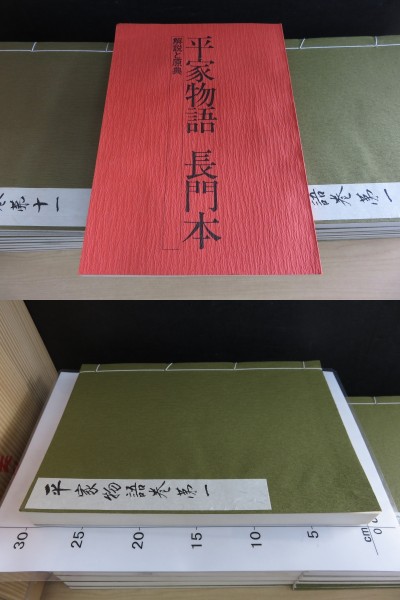 平家物語 長門本
解説と原典
巻第十一
語巻第一
平家物語巻第一
30-
25-
20-
15-
10-
5-
cm
0